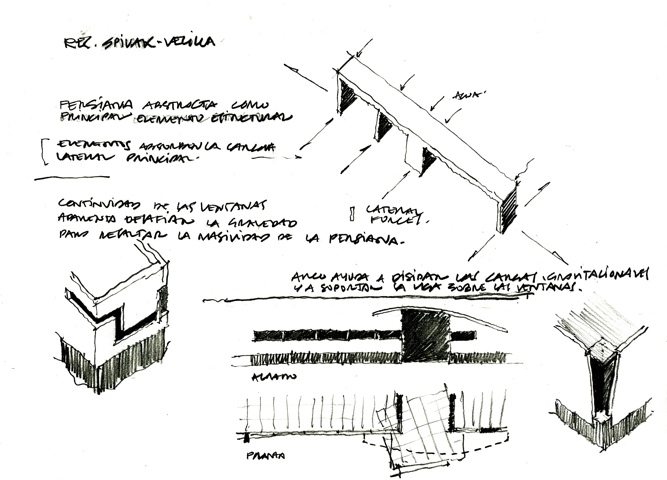 RES. SPIVAK-VELILLA
PERSIANA ABSTRACTA COMO
PRINCIPAL ELEMENTO ESTRUCTURAL
AGUA.
ELEMENTOS ABSORBEN LA CARGA
LATERAL PRINCIPAL.
CONTINUIDAD DE LAS VENTANAS
APARENTA DESAFIAR LA GRAVEDAD
PARA RESALTAR LA MASIVIDAD DE LA PERSIANA.
LATERAL
FORCES.
ARCO AYUDA A DISIPAR LAS CARGAS GRAVITACIONALES
Y A SOPORTAR LA VIGA SOBRE LAS VENTANAS.
ALZADO
PLANTA